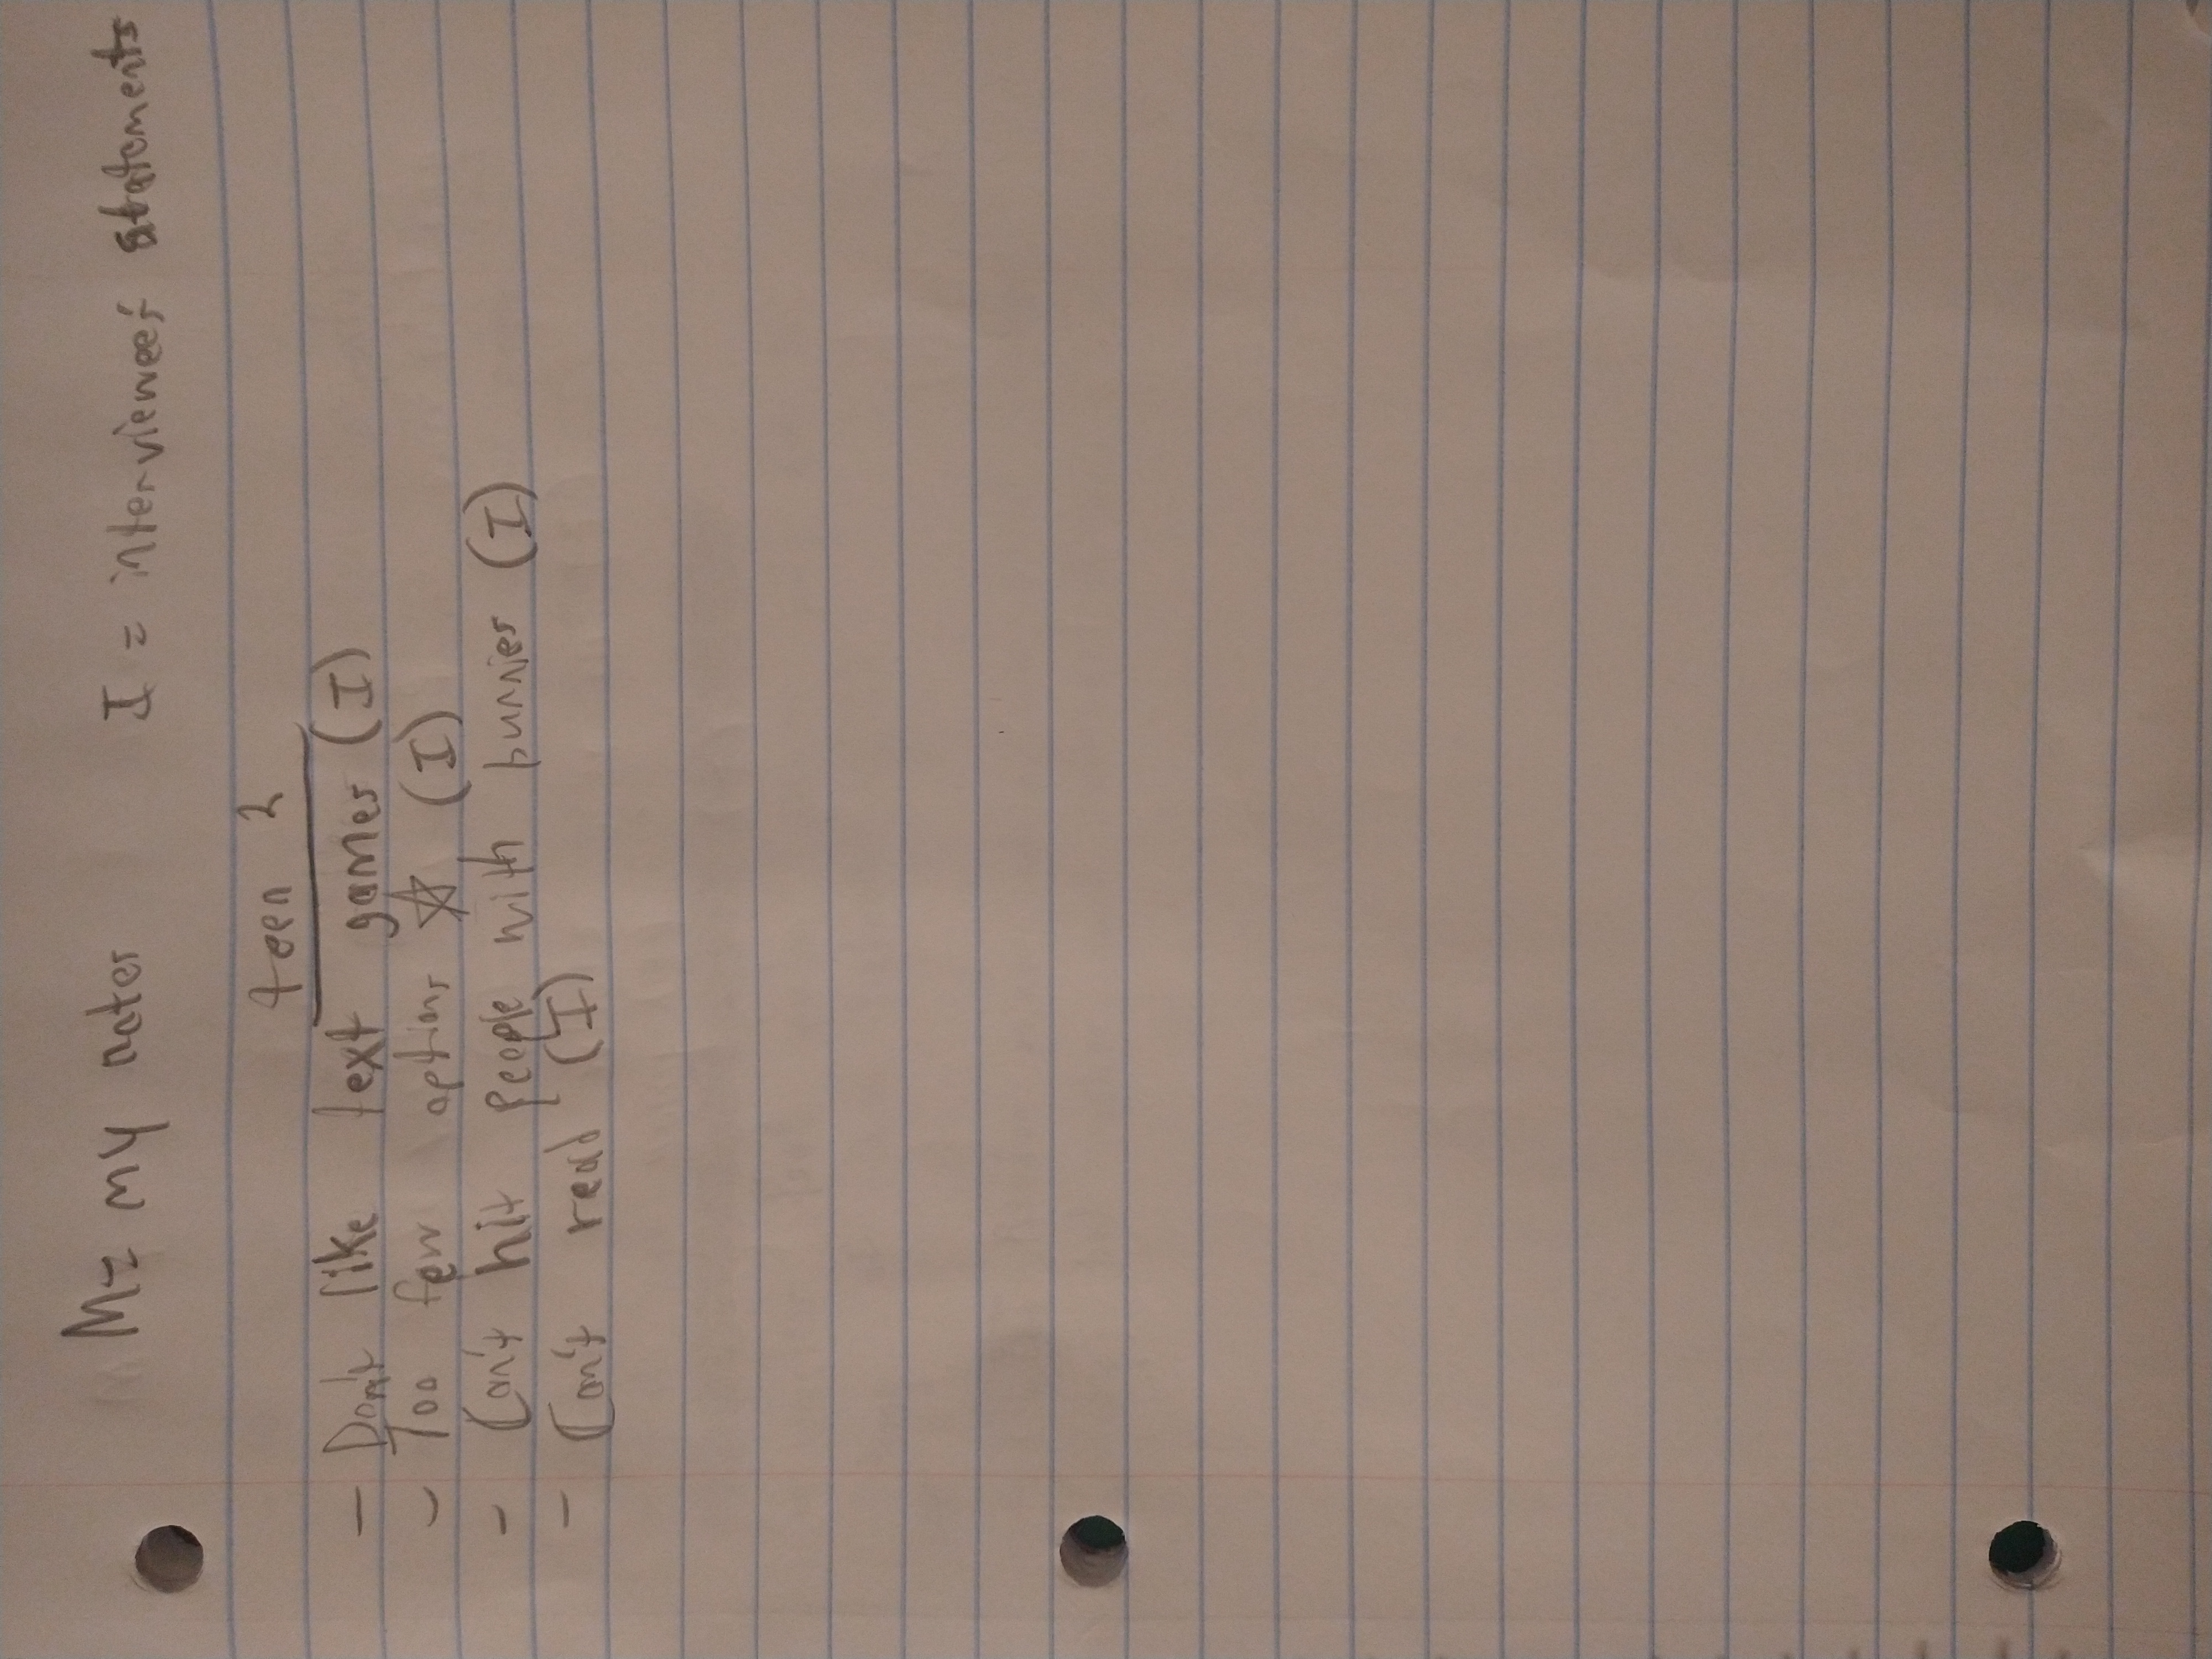 M= my notes I = interviewee's statements
teen 2
- Don't like text games (I)
- Too few options ☆ (I)
- Can't hit people with bunnies (I)
- Can't read (I)